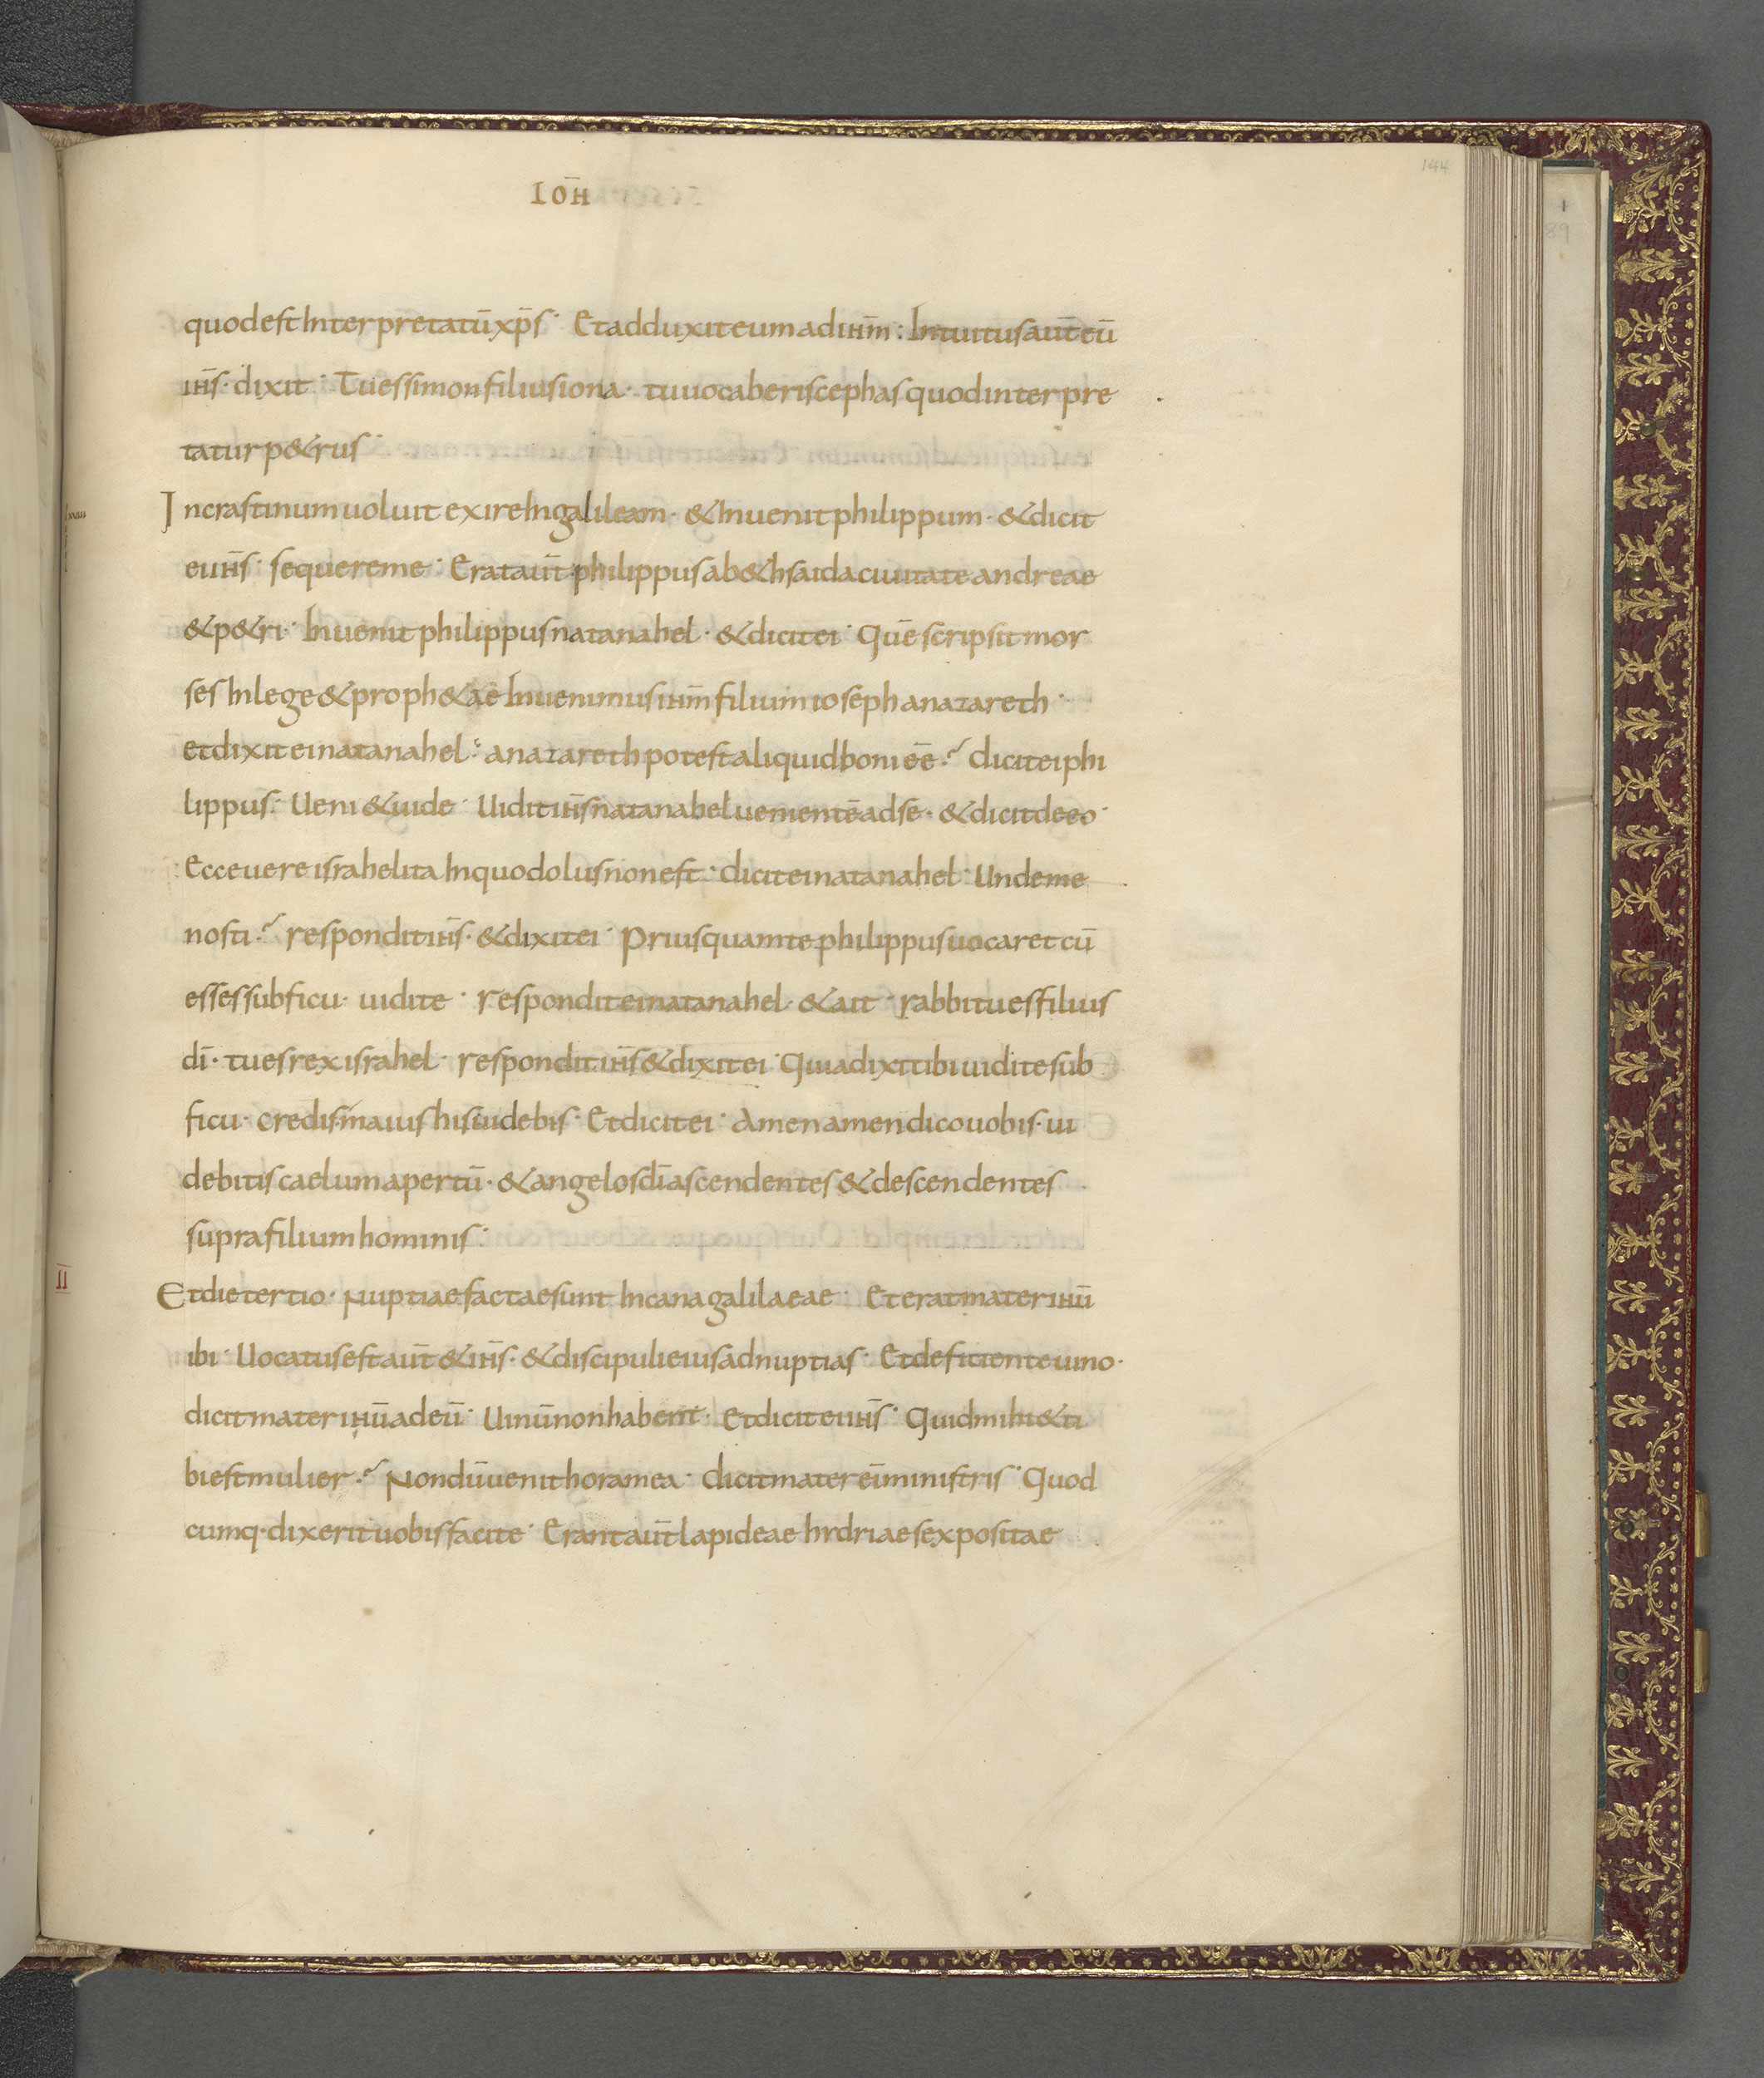 144
IOH̄
quodest Interpretatū xp̄s· Et adduxit eum ad ihm̄: Intuitus aut̄ eū
ihs̄· dixit· Tu es simon filius iona· tu uocaberis cephas quod inter pre
tatur p&rus·
In crastinum uoluit exire In galileam· & Inuenit philippum· & dicit
ei ihs̄· sequere me· Erat aut̄ philippus ab &hsaida ciuitate andreae
& p&ri· Inuenit philippus natanahel· & dicit ei· Quē scripsit mor
ses In lege & proph&ae Inuenimus ihm̄ filium ioseph a nazareth·
et dixit ei natanahel: a nazareth potest aliquid boni eē? dicit ei phi
lippus· Ueni & uide· Uidit ihs̄ natanahel uenientē ad se· & dicit de eo·
Ecce uere israhelita In quo dolus non est· dicit ei natanahel· Unde me
nosti? respondit ihs̄· & dixit ei· Priusquam te philippus uocaret cū
esses sub ficu· uidi te· respondit ei natanahel· & ait· rabbi tu es filius
dī· tu es rex israhel· respondit ihs̄ & dixit ei· Quia dixi tibi uidi te sub
ficu· credis· maius his uidebis· Et dicit ei· Amen amen dico uobis· ui
debitis caelum apertū· & angelos dī ascendentes & descendentes
supra filium hominis·
II
Et die tertio· Nuptiae factae sunt In cana galilaeae· Et erat mater ihū
ibi· Uocatus est aut̄ & ihs̄· & discipuli eius ad nuptias· Et deficiente uino·
dicit mater ihū ad eū· Uinū non habent· Et dicit ei ihs̄· Quid mihi & ti
bi est mulier? Nondū uenit hora mea· dicit mater eī ministris· Quod
cumq· dixerit uobis facite· Erant aut̄ lapideae hrdriae sex positae